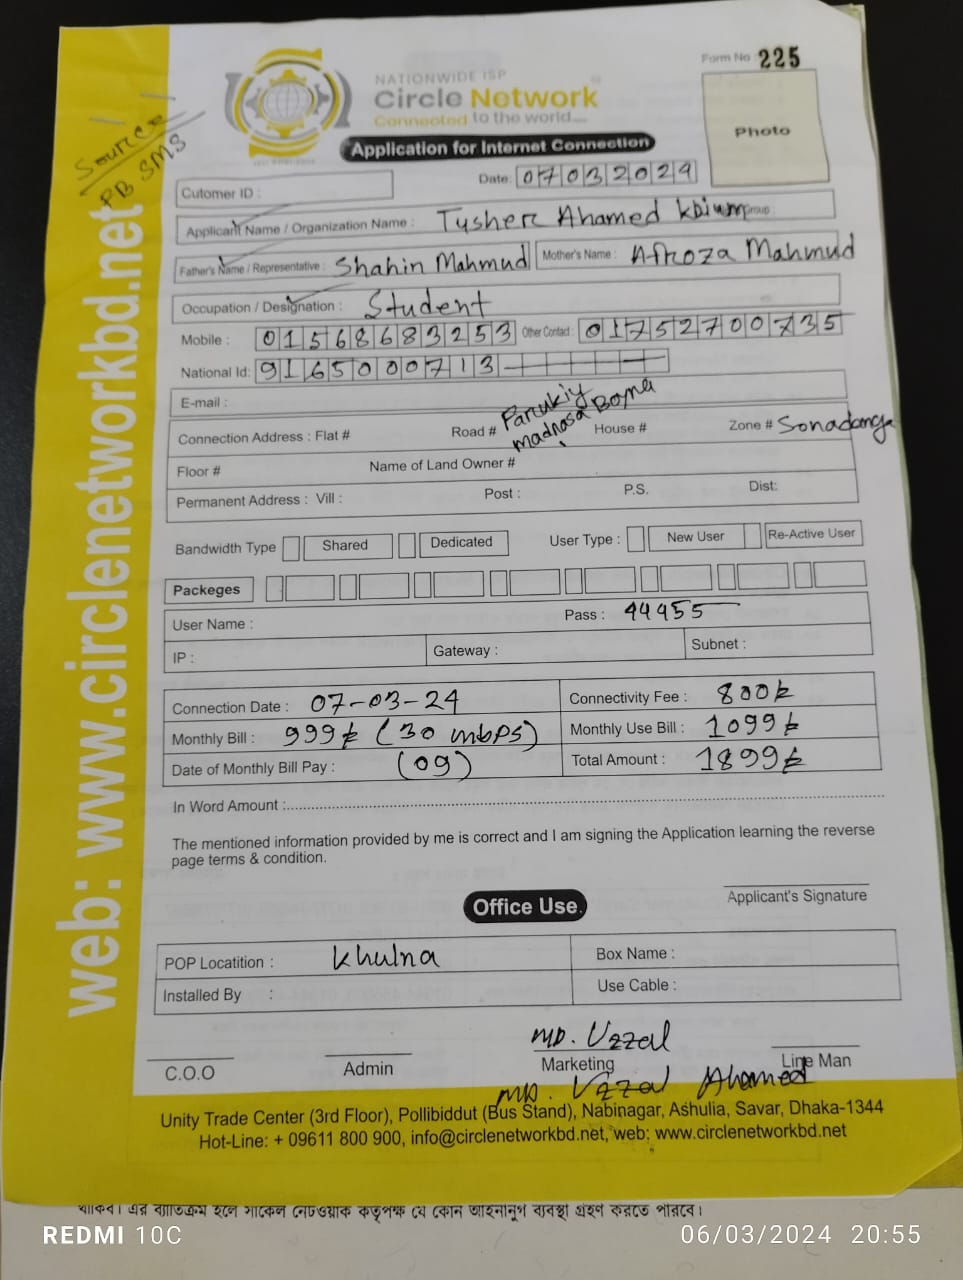 Form No : 225
NATIONWIDE ISP
Circle Network
Connected to the world...
Photo
Application for Internet Connection
Source
PB SMS
web: www.circlenetworkbd.net
Date: 07032024
Cutomer ID :
Applicant Name / Organization Name : Tusher Ahamed
Father's Name / Representative : Shahin Mahmud Mother's Name : Afroza Mahmud
Occupation / Designation : Student
Mobile : 01568683253 Other Contact : 01752700735
National Id: 9165000713
E-mail :
Connection Address : Flat # Road # Farukiy madrasa House # Zone # Sonadanga
Floor # Name of Land Owner #
Permanent Address : Vill : Post : P.S. Dist:
Bandwidth Type Shared Dedicated User Type : New User Re-Active User
Packeges
User Name : Pass : 44455
IP : Gateway : Subnet :
Connection Date : 07-03-24 Connectivity Fee : 800৳
Monthly Bill : 999৳ (30 mbps) Monthly Use Bill : 1099৳
Date of Monthly Bill Pay : (09) Total Amount : 1899৳
In Word Amount :
The mentioned information provided by me is correct and I am signing the Application learning the reverse
page terms & condition.
Applicant's Signature
Office Use.
POP Locatition : Khulna Box Name :
Installed By : Use Cable :
MD. Uzzal
C.O.O Admin Marketing Line Man
MD. Uzzal Ahamed
Unity Trade Center (3rd Floor), Pollibiddut (Bus Stand), Nabinagar, Ashulia, Savar, Dhaka-1344
Hot-Line: + 09611 800 900, info@circlenetworkbd.net, web: www.circlenetworkbd.net
থাকিব। এর ব্যতিক্রম হলে সার্কেল নেটওয়ার্ক কর্তৃপক্ষ যে কোন আইনানুগ ব্যবস্থা গ্রহণ করতে পারবে।
REDMI 10C 06/03/2024 20:55